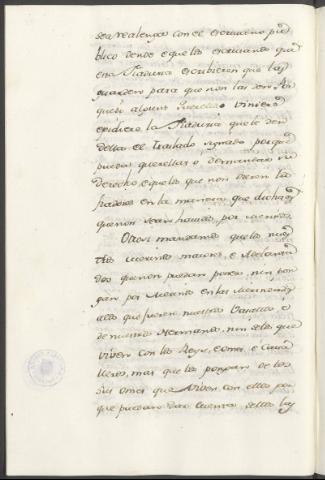 sea realengo con el escrivano pu
blico donde e que los escrivanos que
esta Fiaduria escribieren que las
guarden para que non las den
que si alguno Querelloso viniere
e pidiere la Fiaduria que le den
dellas el traslado signado porque
pueda querellar o demandar su
derecho, e que los que non dieren los
fiadores en la manera que dicha es
que non sean havidos por merinos,
Otrosi mandamos que los nues
tros Merinos maiores, e Adelanta
dos que non puedan poner, nin pon
gan por Merinos en las Merindades
a los que fueren nuestros Vasallos o
de nuestros Hermanos, nin de los que
viven con los Reyes, e omes, e Cava
lleros, mas que los pongan de los
sus omes que viven con ellos por
que puedan dar cuenta dellos las